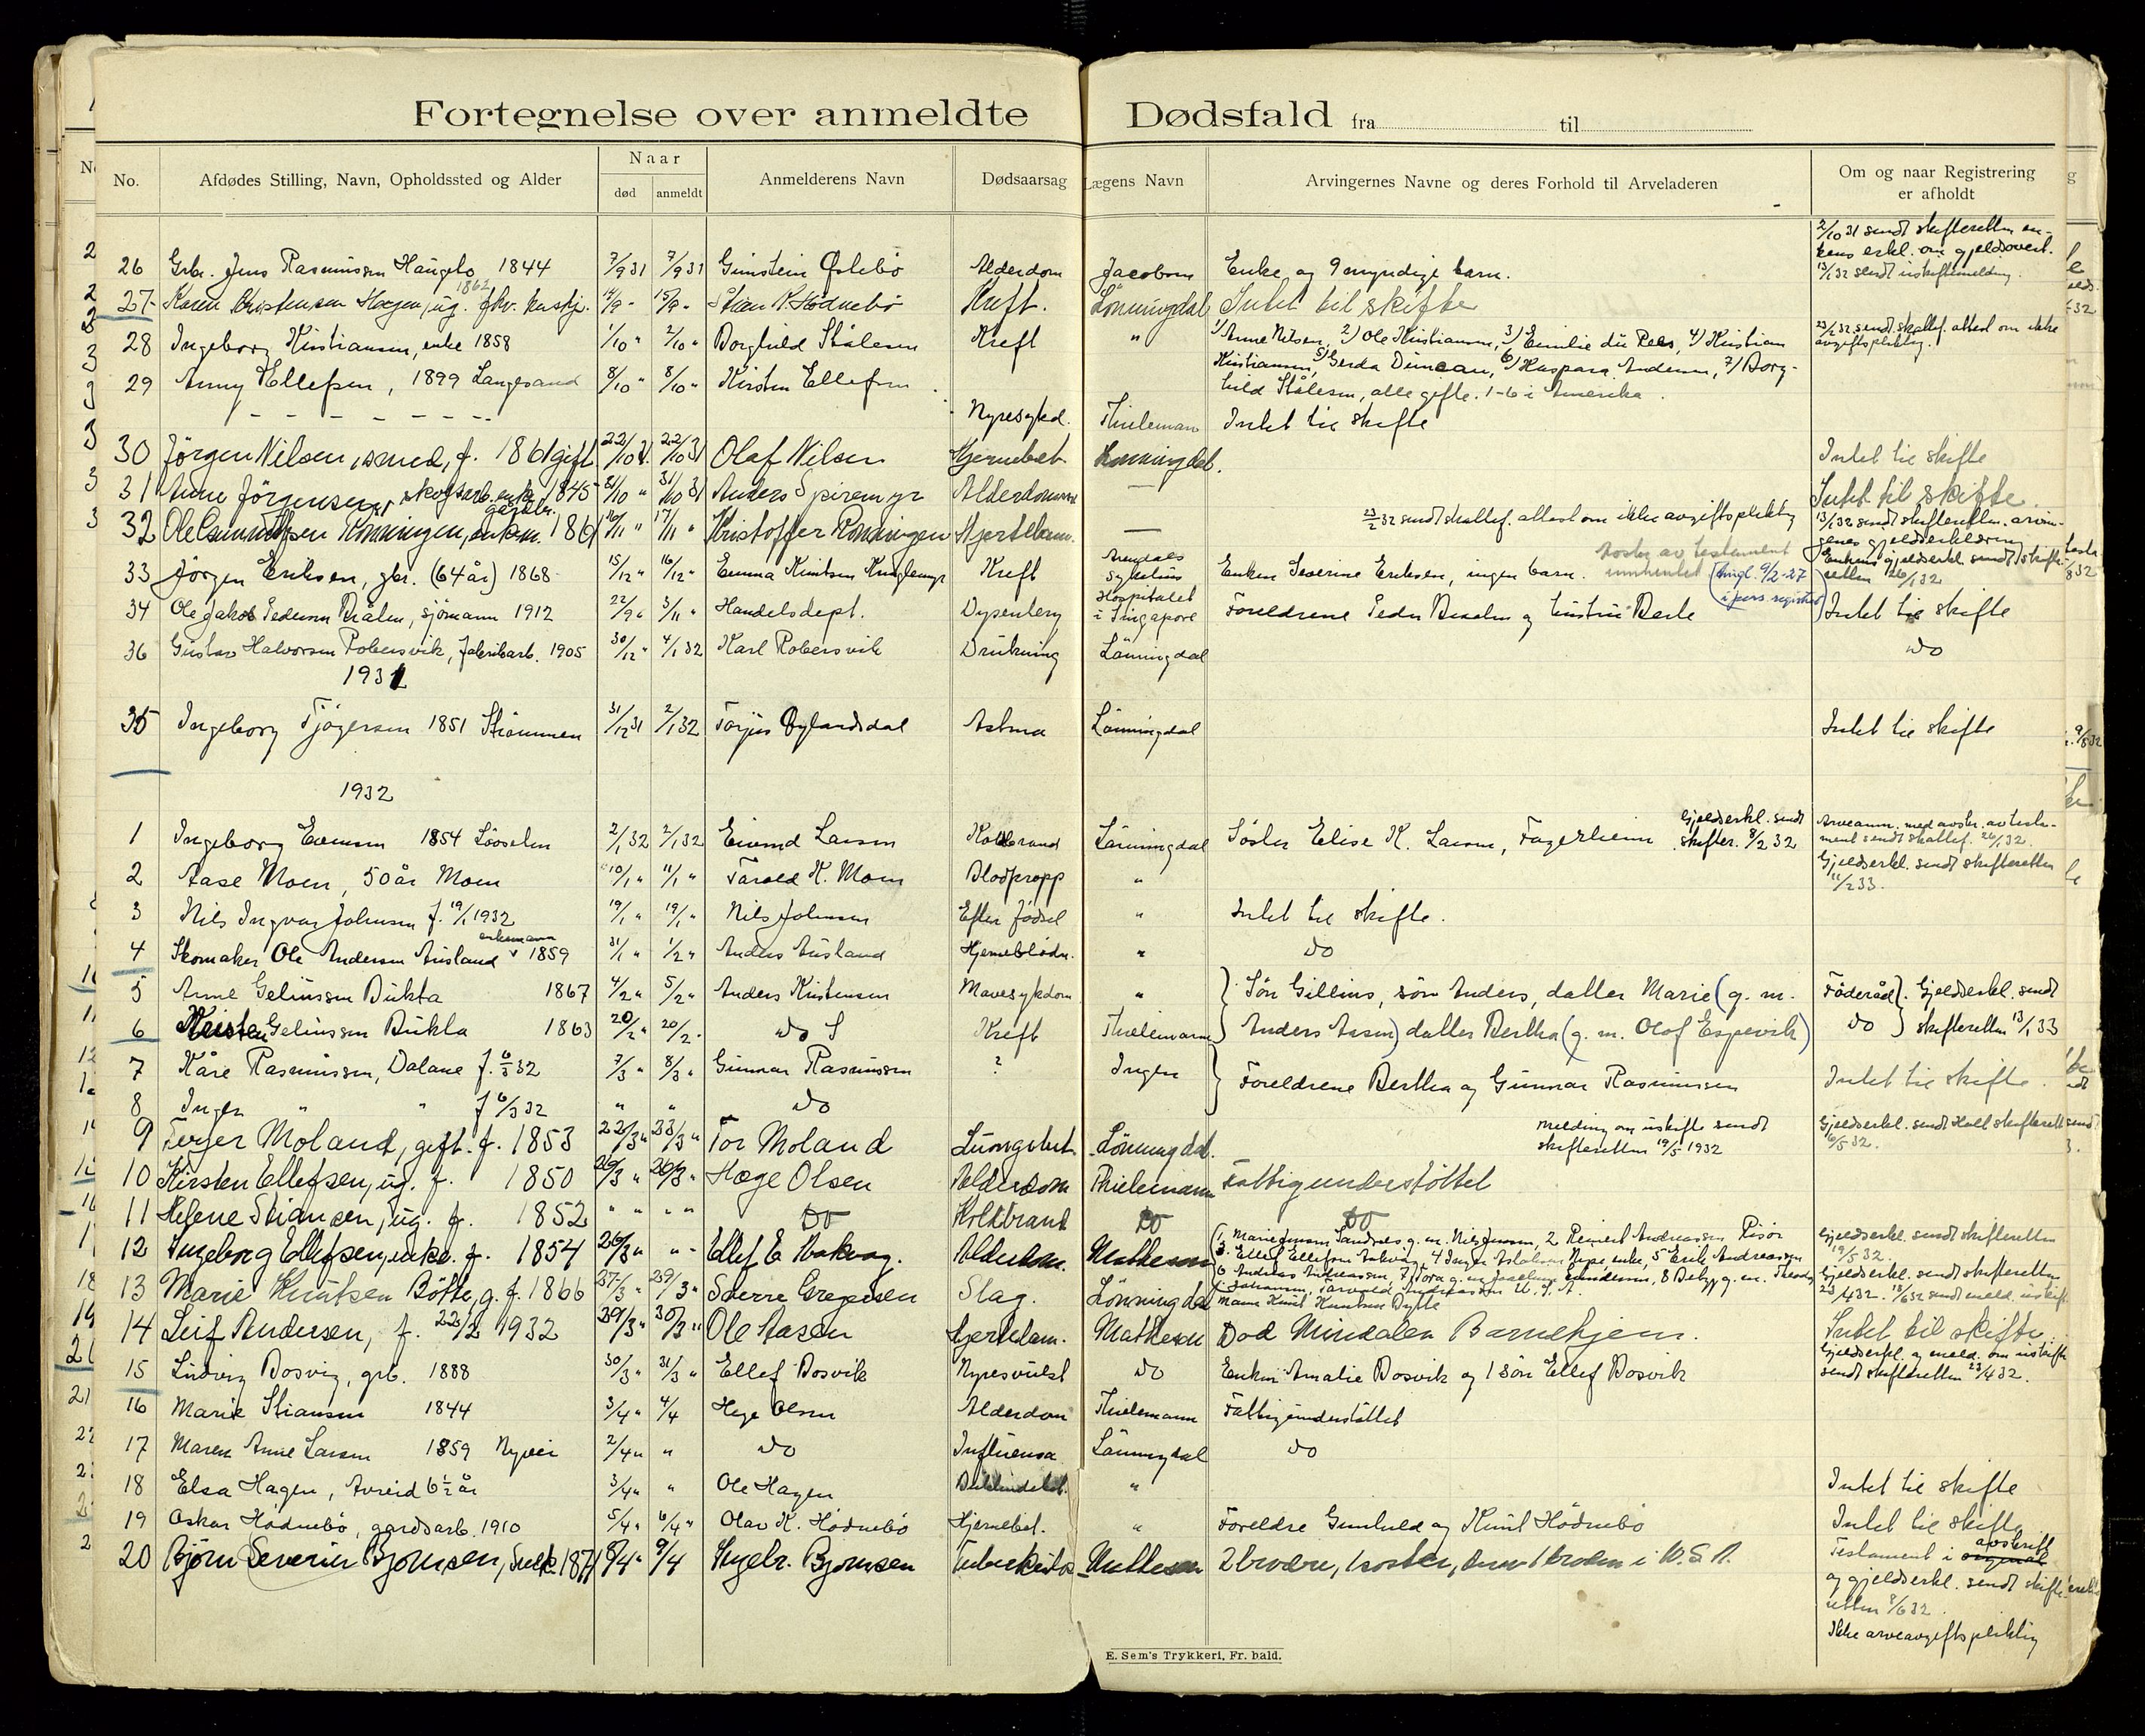 Fortegnelse over anmeldte Dødsfald fra til
No. Afdødes Stilling, Navn, Opholdssted og Alder Naar død anmeldt Anmelderens Navn Dødsaarsag Lægens Navn Arvingernes Navne og deres Forhold til Arveladeren Om og naar Registrering er afholdt
2/10 31 sendt skifteretten en-
kens erkl. om gjeldsovert.
26 Grbr. Jens Rasmussen Haugbo 1844 7/9 31 7/9 31 Gunstein Øslebø Alderdom Jacobsen Enke og 9 myndige barn. 13/1 32 sendt uskiftemelding.
1862
27 Karen Christensen Hagen, ug. fhv. 14/9 " 15/9 " Stian K. Hødnebø Kreft. Lönningdal Intet til skifte
28 Ingeborg Kristiansen, enke 1858 1/10 " 2/10 " Borghild Stålesen Kreft " 1/ Anne Nilsen, 2/ Ole Kristiansen, 3/ Emilie du Pees, 4/ Kristian 23/2 32 sendt skattef. attest om ikke
avgiftspliktig.
29 Anny Ellefsen, 1899 Langesand 8/10 " 8/10 " Kirsten Ellefsen Kristiansen, 5/ Gerda Duncan, 6/ Kaspara Andersen, 7/ Borg-
hild Stålesen, alle gifte. 1-6 i Amerika.
- - - - - - - - Nyresykd. Thielemann Intet til skifte
30 Jörgen Nilsen, smed, f. 1861 gift 22/10 31 22/10 31 Olaf Nilsen Hjernebet. Lönningdal. Intet til skifte
31 Anne Jörgensen, skogsarb. enke 1845 31/10 " 31/10 31 Anders Spiremyr Alderdomm — Intet til skifte.
32 Ole Rönningen, enkem. 186 16/11 " 17/11 " Kristoffer Rönningen Hjertelam. — 23/2 32 sendt skattef. attest om ikke avgiftspliktig 13/1 32 sendt skifteretten arvin-
genes gjeldserklæring
33 Jörgen Eriksen, gbr. (64 år) 1868 15/12 " 16/12 " Emma Knutsen Kreft Arendals sykehus Enken Severine Eriksen, ingen barn. Avskr. av testament innhentet (tingl. 9/2-27 i pers. registret) Enkens gjeldserkl. sendt skifte-
retten 26/1 32
34 Ole Jakob Pedersen Brålen, sjömann 1912 22/9 " 3/11 " Handelsdept. Dysentery Hospitalet i Singapore Foreldrene Peder og hustru Berte Intet til skifte
36 Gustav Halvorsen Robersvik, fabrikarb. 1905 30/12 " 4/1 32 Karl Robersvik Drukning Lönningdal do
1931
35 Ingeborg Tjögersen 1851 Strömmen 31/12 31 2/1 32 Torjus Øylandsdal Astma Lönningdal Intet til skifte
1932
1 Ingeborg Evensen 1854 2/1 32 2/1 32 Eivind Larsen Koldbrand Lönningdal Söster Elise K. Larsen, Fagerheim Gjeldserkl. sendt skifter. 8/2 32 Arveanm. med avskr. av testa-
ment sendt skattef. 26/1 32.
2 Aase Moen, 50 år Moen 10/1 " 11/1 " Tarald K. Moen Blodpropp " Gjeldserkl. sendt skifteretten
11/2 33.
3 Nils Ingvar Johnsen f. 19/1 1932 19/1 " 19/1 " Nils Johnsen Efter födsel " Intet til skifte.
4 Skomaker Ole Andersen Ausland enkemann 1859 31/1 " 1/2 " Anders Ausland Hjerneblödn. " do
5 Anne Geliussen Bukta 1867 4/2 " 5/2 " Anders Kristensen Mavesykdom " Sön Gillius, sön Anders, datter Marie (g. m. Föderåd. Gjeldserkl. sendt
6 Kristen Geliussen Bukta 1863 20/2 " 20/2 " do Kreft Thielemann Anders Aasen) datter Bertha (g. m. Olaf Espevik) do skifteretten 13/1 33
7 Kåre Rasmussen, Dalane f. 6/3 32 7/3 " 8/3 " Gunnar Rasmussen ? Ingen Foreldrene Bertha og Gunnar Rasmussen Intet til skifte.
8 Inger " " f. 6/3 32 " " do
9 Terjer Moland, gift. f. 1853 22/3 " 23/3 " Tor Moland Lungebet. Lönningdal. Melding om uskifte sendt
skifteretten 19/5 1932 Gjeldserkl. sendt Holt skifterett
6/5 32.
10 Kirsten Ellefsen, ug. f. 1850 26/3 " 26/3 " Hæge Olsen Alderdom Thielemann Fattigunderstöttet
11 Helene Stiansen, ug. f. 1852 " " " " Do Koldbrand Do Do
12 Ingeborg Ellefsen, enke. f. 1854 26/3 " " - Ellef E. Alderdom. Mathesen (1, Marie Jensen Sandnes g. m. Nils Jensen, 2 Reinert Andreassen Risör Gjeldserkl. sendt skifteretten
19/5 32.
3. Ellef Ellefsen Askvåg, 4 Inger Aslaksen Nype, enke, 5 Erik Andreassen
6 Andreas Andreassen, 7 Tora g. m.
13 Marie Knutsen Bötte, g. f. 1866 27/3 " 29/3 " Sverre Gregersen Slag. Lönningdal Mann Knut Knutsen Bytte Gjeldserkl. sendt skifteretten
23/4 32. 18/6 32 sendt meld. uskift
14 Leif Andersen, f. 22/2 1932 29/3 " 30/3 " Ole Aasen Hjertelam. Mathesen Död Mindalen Barnehjem. Intet til skifte.
15 Ludvig Bosvig, grb. 1888 30/3 " 31/3 " Ellef Bosvik Nyresvulst do Enken Amalie Bosvik og 1 sön Ellef Bosvik Gjeldserkl. og meld. om uskifte
sendt skifteretten 23/4 32.
16 Marie Stiansen 1844 3/4 " 4/4 Hege Olsen Alderdom Thielemann Fattigunderstöttet
17 Maren Anne Larsen 1859 Nyvei 2/4 " " do Influensa Lönningdal do
18 Elsa Hagen, Avreid 6 1/2 år 3/4 " " Ole Hagen " Intet til skifte
19 Oskar Hödnebö, gardsarb. 1910 5/4 " 6/4 " Olav K. Hödnebö Hjernebet. " Foreldre Gunhild og Knut Hödnebö Intet til skifte
20 Björn Severin Bjornsen, 187 8/4 " 9/4 Ingebr. Bjornsen Tuberkulos Mathesen 2 brødre, 1 søster, 1 broder i U.S.A. Testament i avskrift
og gjeldserkl. sendt skifte-
retten 8/6 32.
Ikke arveavgiftspliktig
E. Sem's Trykkeri, Fr. hald.